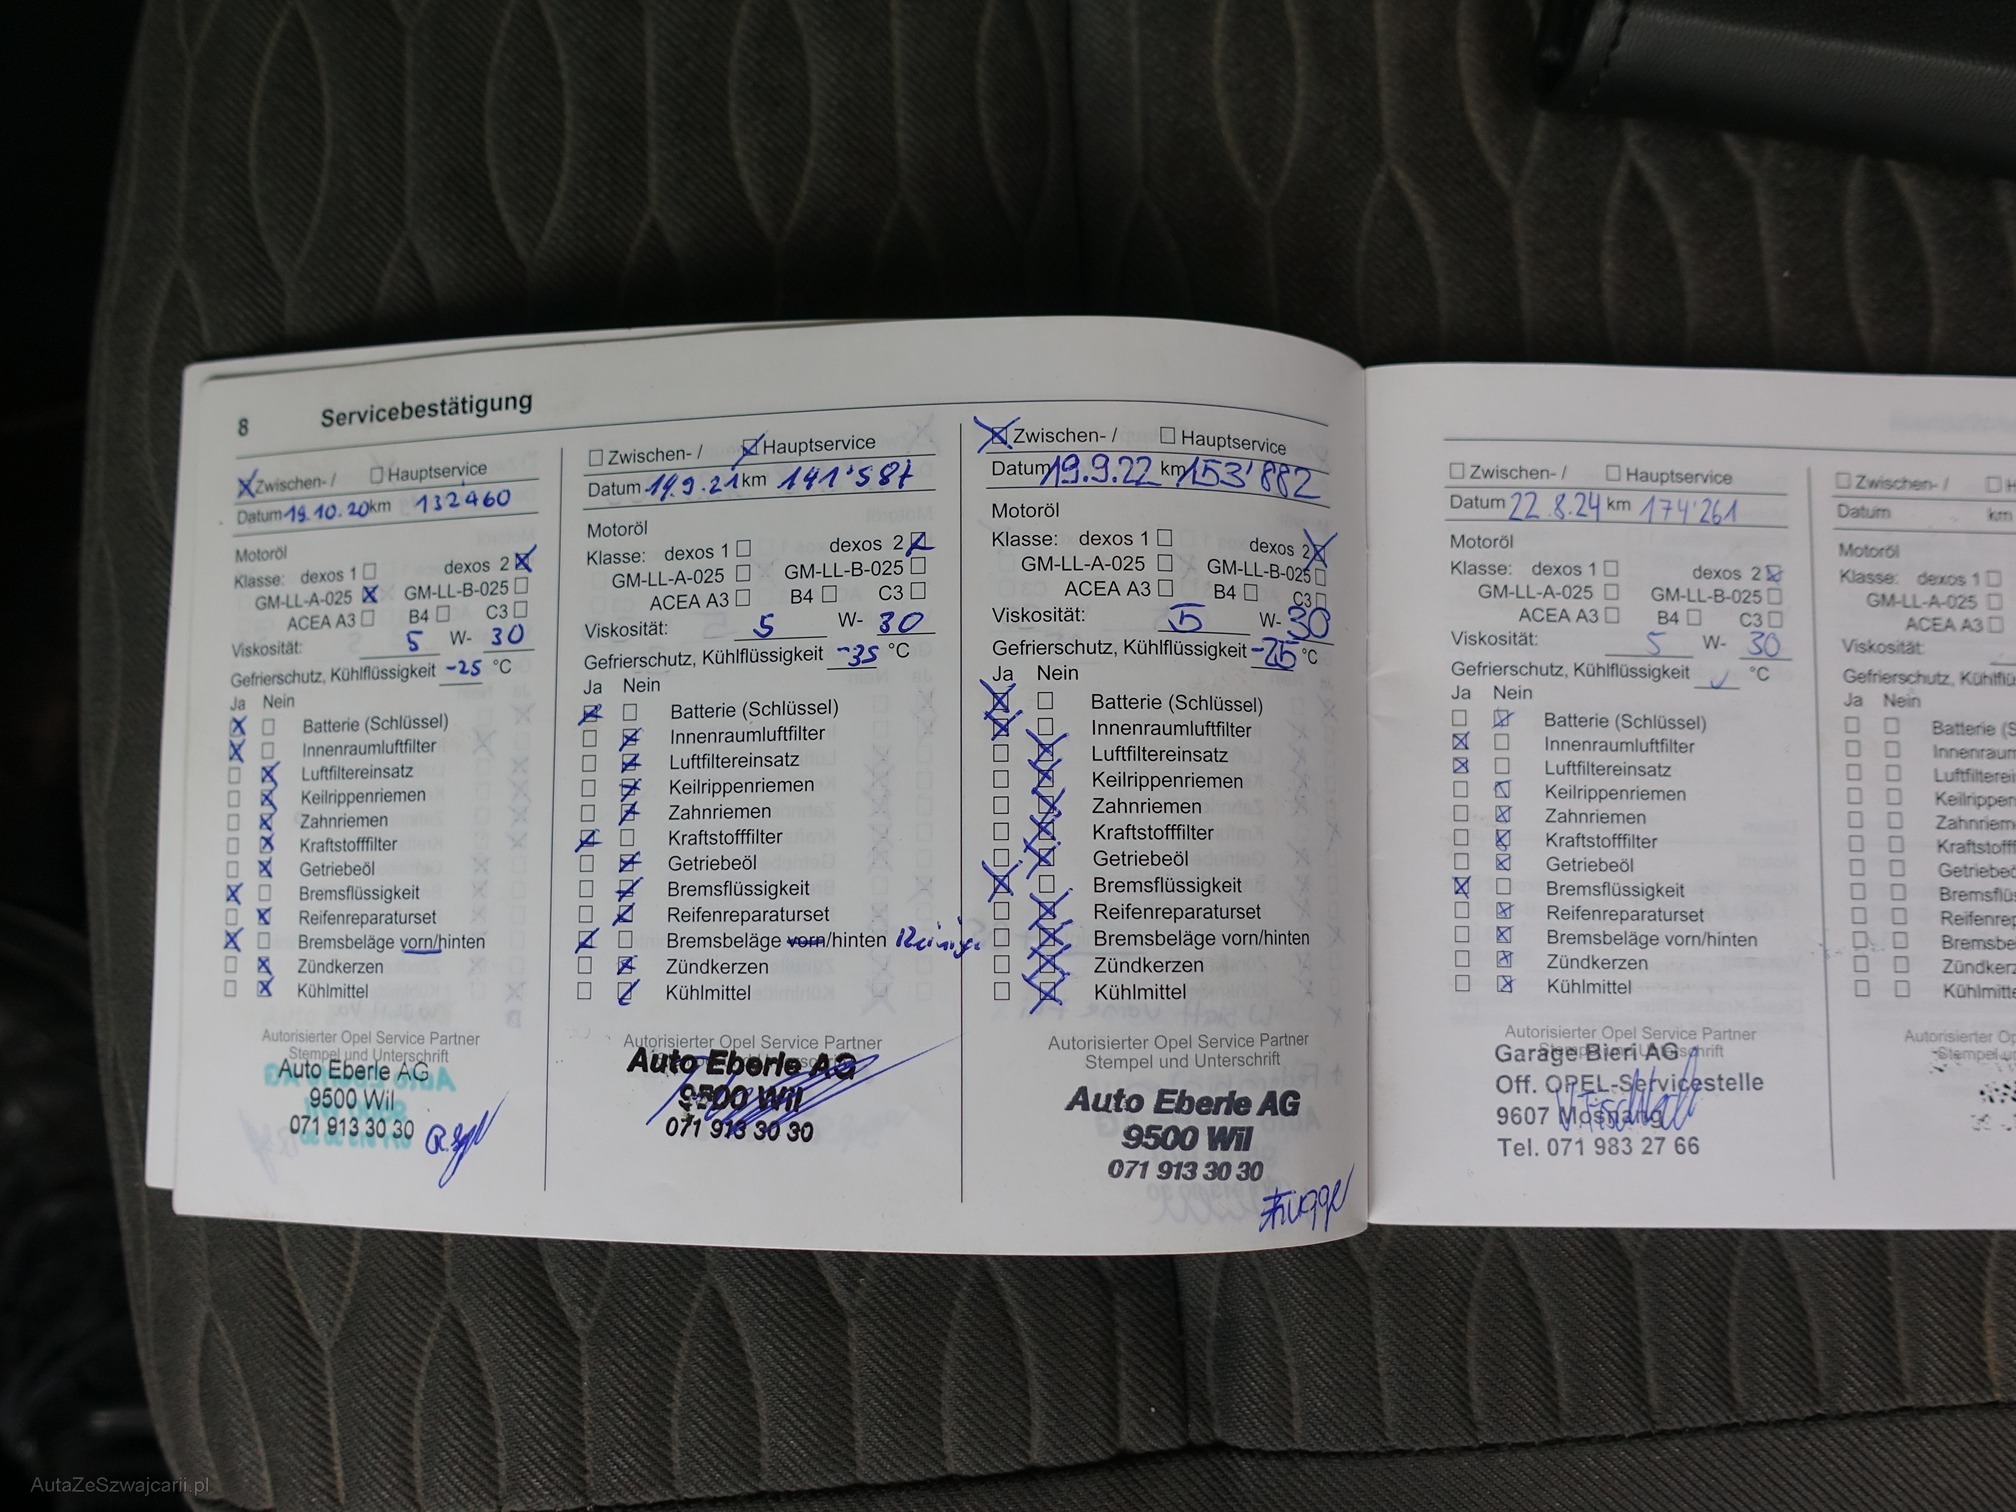 8 Servicebestätigung
Zwischen- / Hauptservice
Datum 19.10.20 km 132460
Motoröl
Klasse: dexos 1 dexos 2
GM-LL-A-025 GM-LL-B-025
ACEA A3 B4 C3
Viskosität: 5 W- 30
Gefrierschutz, Kühlflüssigkeit -25 °C
Ja Nein
Batterie (Schlüssel)
Innenraumluftfilter
Luftfiltereinsatz
Keilrippenriemen
Zahnriemen
Kraftstofffilter
Getriebeöl
Bremsflüssigkeit
Reifenreparaturset
Bremsbeläge vorn/hinten
Zündkerzen
Kühlmittel
Autorisierter Opel Service Partner
Stempel und Unterschrift
Auto Eberle AG
9500 Wil
071 913 30 30
Zwischen- / Hauptservice
Datum 14.9.21 km 141'587
Motoröl
Klasse: dexos 1 dexos 2
GM-LL-A-025 GM-LL-B-025
ACEA A3 B4 C3
Viskosität: 5 W- 30
Gefrierschutz, Kühlflüssigkeit -35 °C
Ja Nein
Batterie (Schlüssel)
Innenraumluftfilter
Luftfiltereinsatz
Keilrippenriemen
Zahnriemen
Kraftstofffilter
Getriebeöl
Bremsflüssigkeit
Reifenreparaturset
Bremsbeläge vorn/hinten
Zündkerzen
Kühlmittel
Autorisierter Opel Service Partner
Auto Eberle AG
9500 Wil
071 913 30 30
Zwischen- / Hauptservice
Datum 19.9.22 km 153'882
Motoröl
Klasse: dexos 1 dexos 2
GM-LL-A-025 GM-LL-B-025
ACEA A3 B4 C3
Viskosität: 5 W- 30
Gefrierschutz, Kühlflüssigkeit -25 °C
Ja Nein
Batterie (Schlüssel)
Innenraumluftfilter
Luftfiltereinsatz
Keilrippenriemen
Zahnriemen
Kraftstofffilter
Getriebeöl
Bremsflüssigkeit
Reifenreparaturset
Bremsbeläge vorn/hinten
Zündkerzen
Kühlmittel
Autorisierter Opel Service Partner
Stempel und Unterschrift
Auto Eberle AG
9500 Wil
071 913 30 30
Zwischen- / Hauptservice
Datum 22.8.24 km 174'261
Motoröl
Klasse: dexos 1 dexos 2
GM-LL-A-025 GM-LL-B-025
ACEA A3 B4 C3
Viskosität: 5 W- 30
Gefrierschutz, Kühlflüssigkeit °C
Ja Nein
Batterie (Schlüssel)
Innenraumluftfilter
Luftfiltereinsatz
Keilrippenriemen
Zahnriemen
Kraftstofffilter
Getriebeöl
Bremsflüssigkeit
Reifenreparaturset
Bremsbeläge vorn/hinten
Zündkerzen
Kühlmittel
Autorisierter Opel Service Partner
Stempel und Unterschrift
Garage Bieri AG
Off. OPEL-Servicestelle
9607 Mosnang
Tel. 071 983 27 66
Zwischen- / H
Datum km
Motoröl
Klasse: dexos 1
GM-LL-A-025
ACEA A3
Viskosität:
Gefrierschutz, Kühlflü
Ja Nein
Batterie (S
Innenraum
Luftfilterein
Keilrippen
Zahnrieme
Kraftstofff
Getriebeö
Bremsflüs
Reifenrep
Bremsbe
Zündkerz
Kühlmitte
Autorisierter Op
Stempel u
AutaZeSzwajcarii.pl